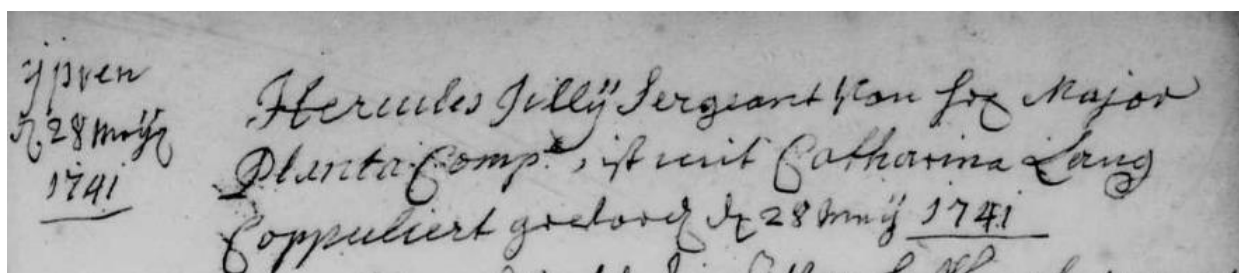 Ypren
d 28 Maÿ
1741
Hercules Jillÿ Sergeant Von Hr Major
Planta Comp., ist mit Catharina Lang
Coppuliert worden d 28 Maÿ 1741